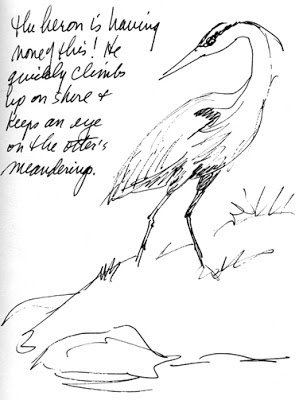 the heron is having
none of this! He
quickly climbs
up on shore &
keeps an eye
on the otter's
meandering.